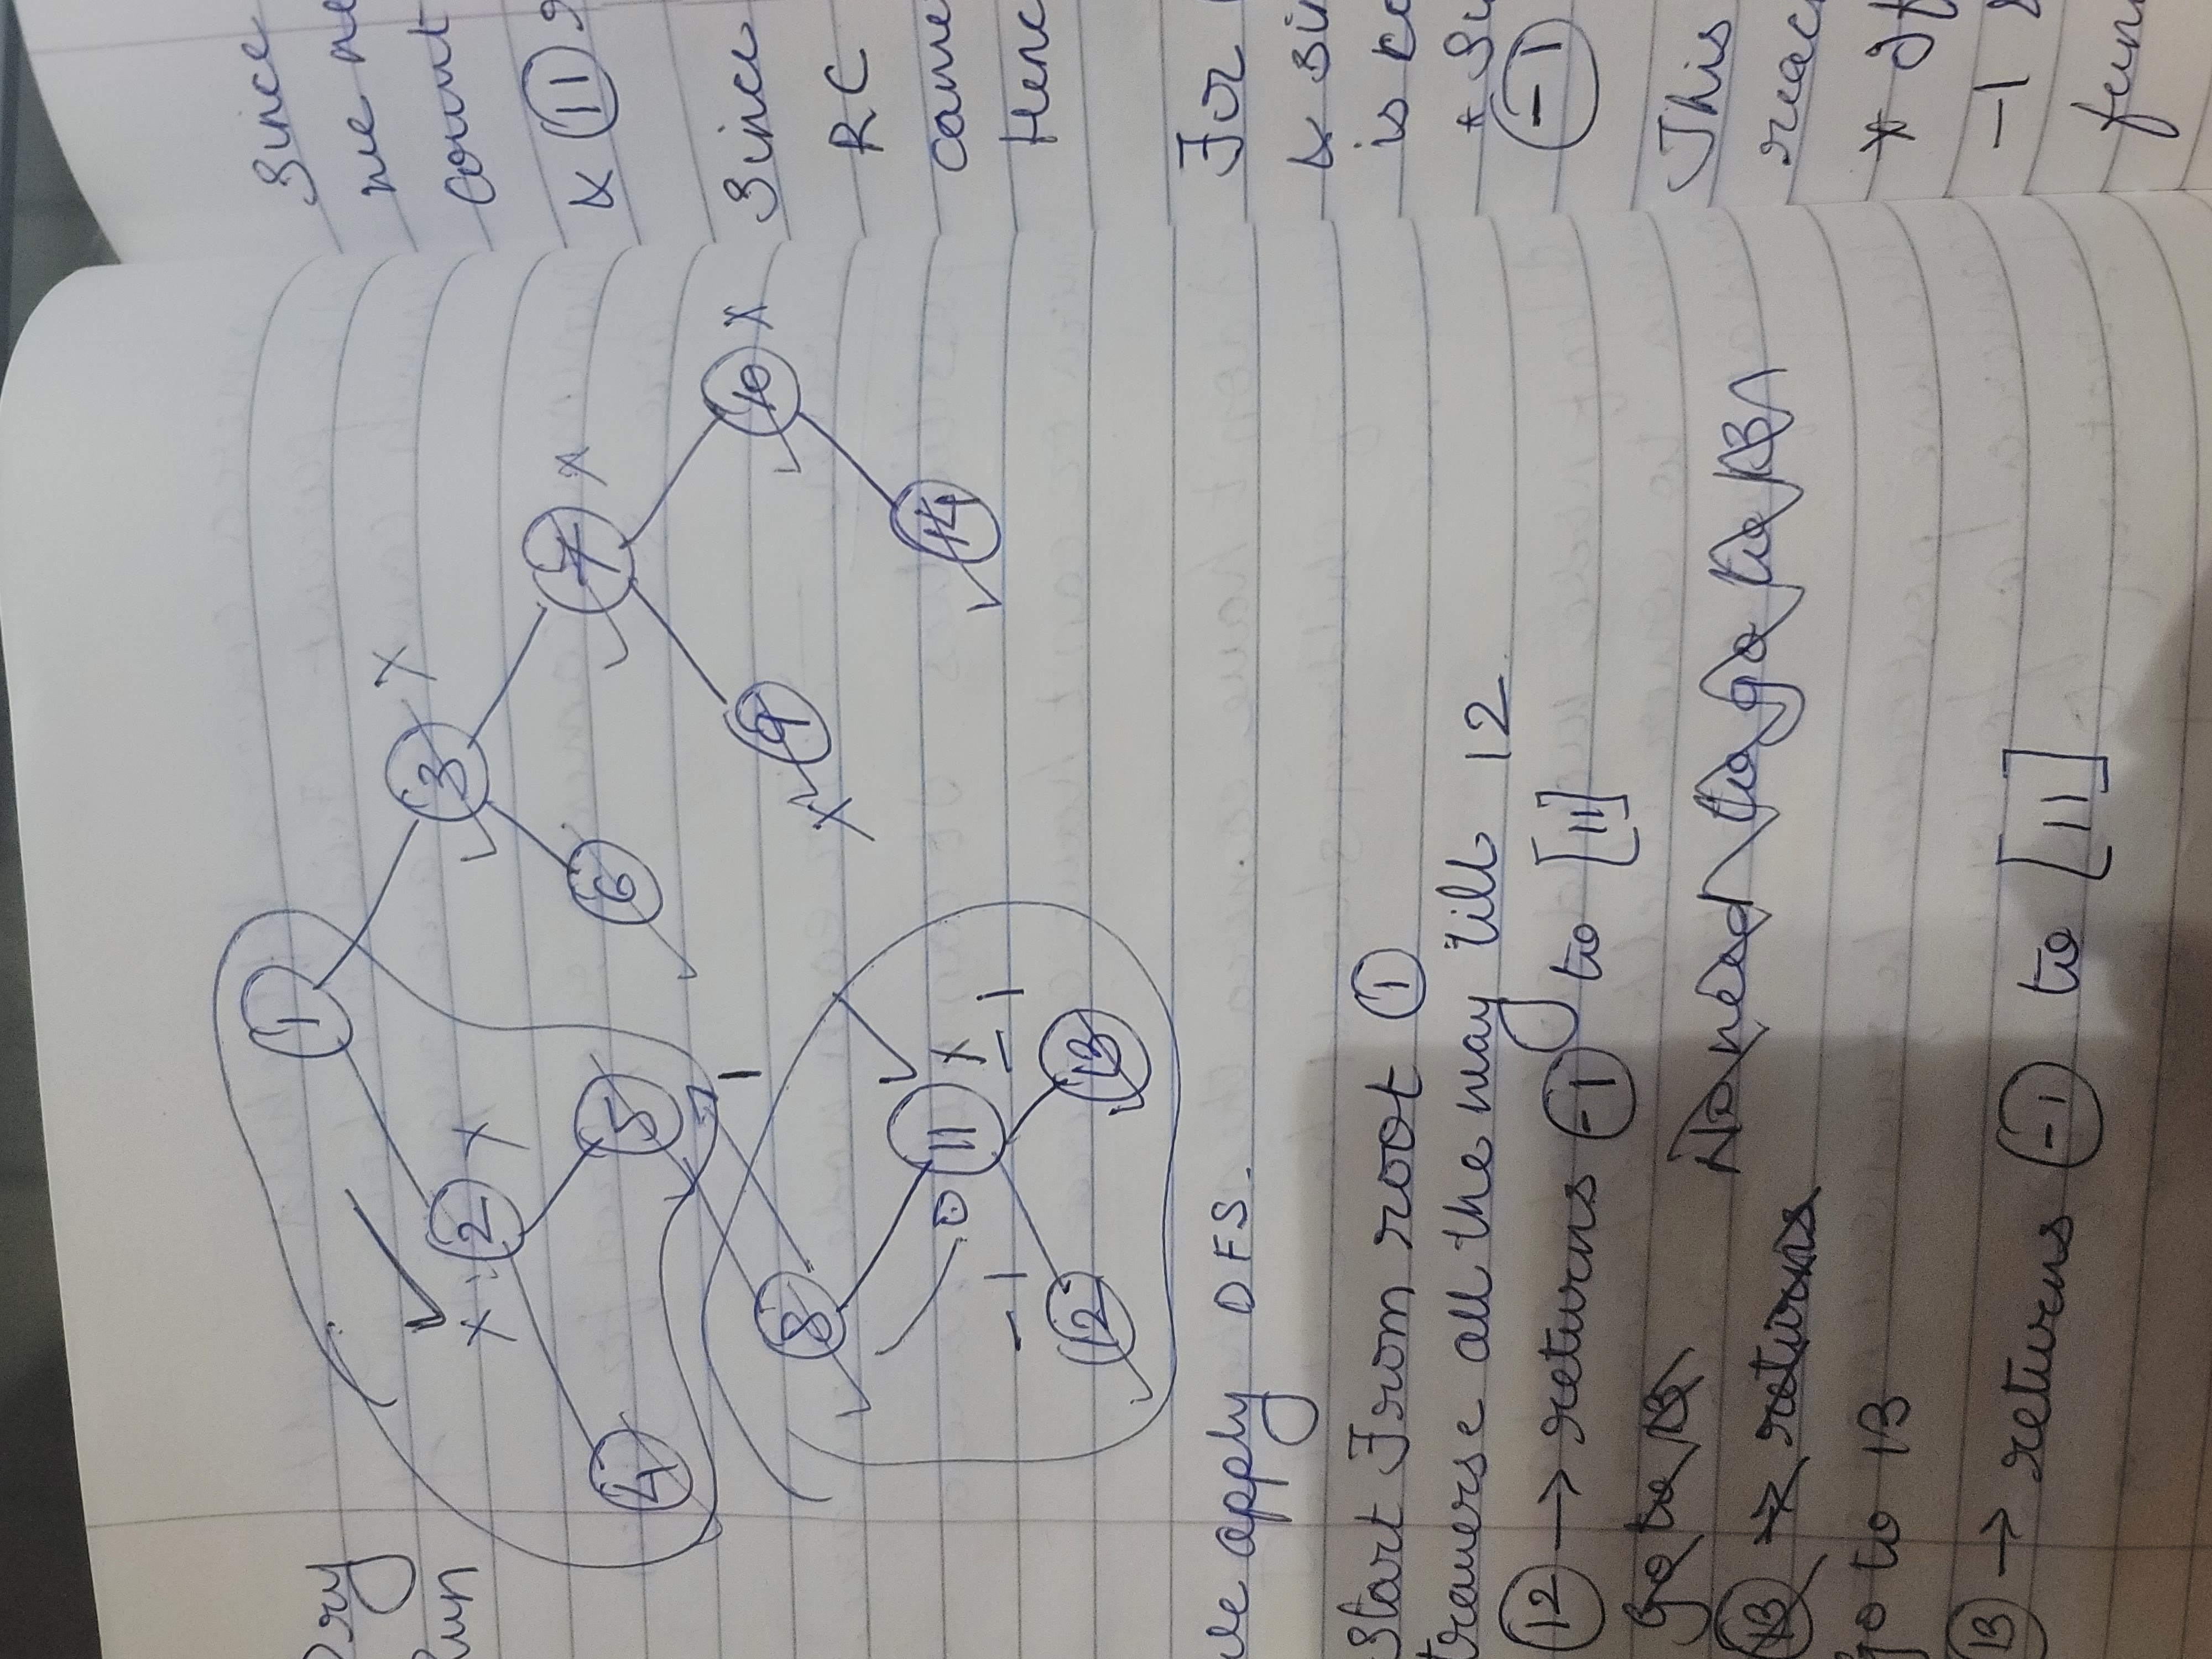 Dry
Run
1
2
3
4
5
6
7
8
9
10
11
12
13
14
1
0
-1
-1
apply DFS.
Start From root 1
traverse all the way till 12
12 → returns -1 to [11]
go to 13
No need to go to 13
13 → returns
go to 13
13 → returns -1 to [11]
Since
we
count
& 11
Since
RC
came
Henc
For
&
is
-1
This
reac
* If
-1
fun